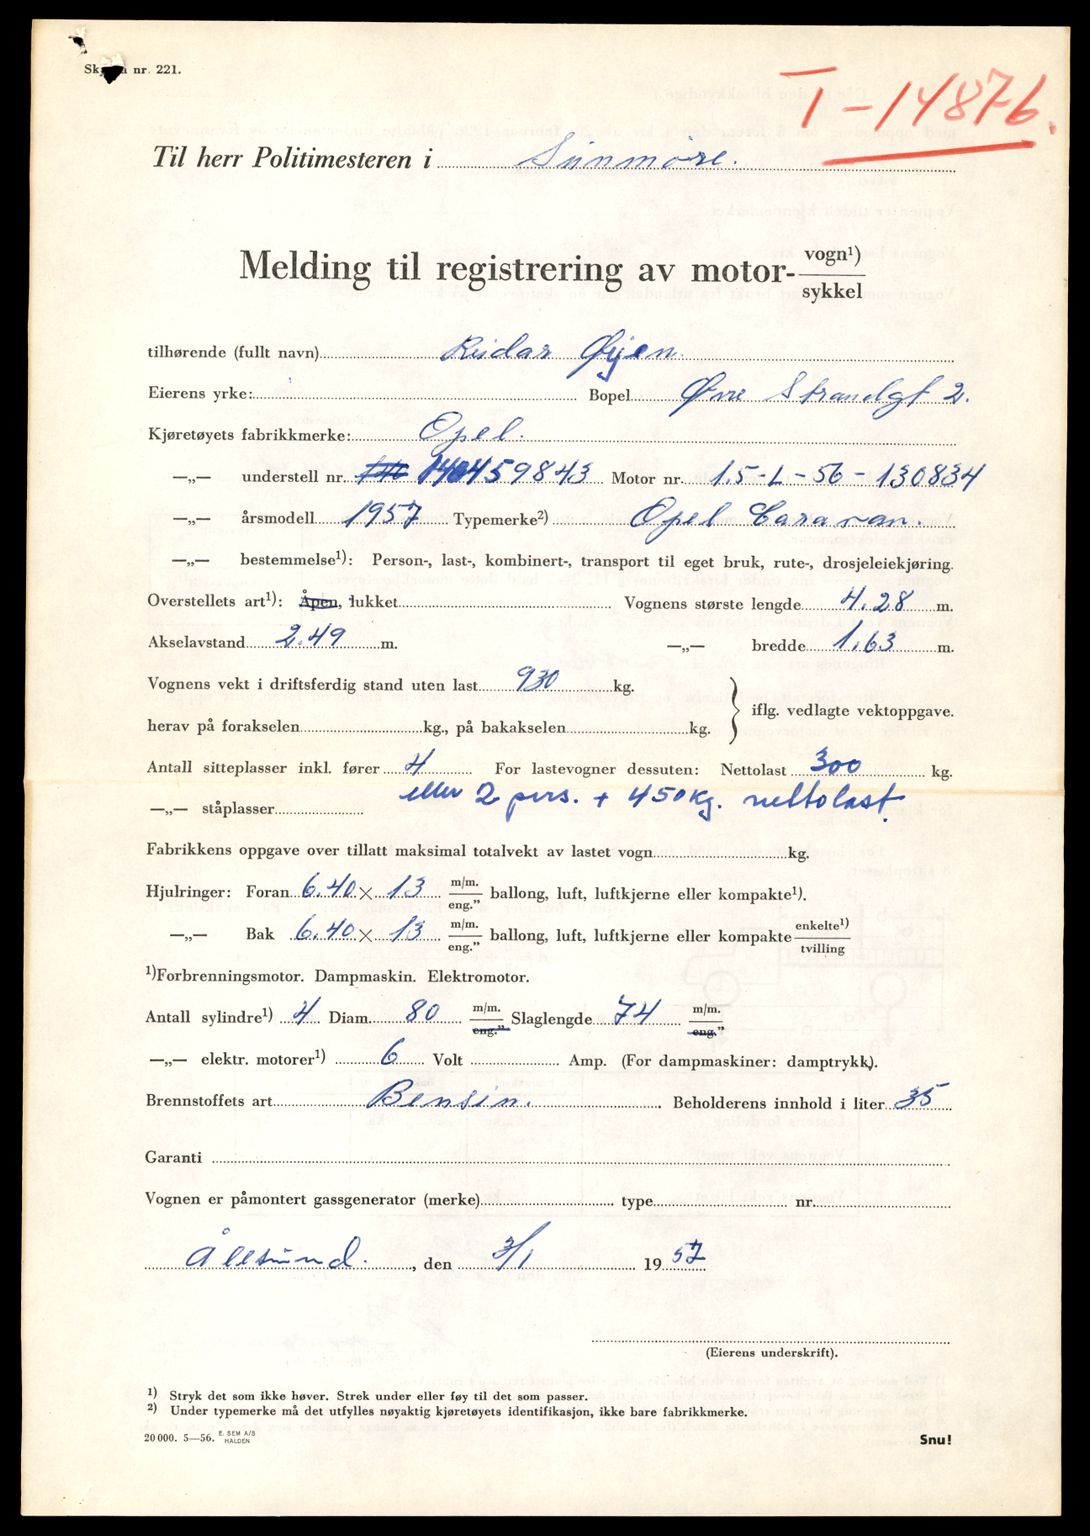 Skjema nr. 221.
T-14876.
Til herr Politimesteren i Sunnmøre.
Melding til registrering av motor-vogn¹)
sykkel
tilhørende (fullt navn) Reidar Øyen.
Eierens yrke: Bopel Øvre Strandgt 2.
Kjøretøyets fabrikkmerke: Opel.
—„— understell nr. 140459843 Motor nr. 1.5-L-56-130834
—„— årsmodell 1957 Typemerke²) Opel Caravan.
—„— bestemmelse¹): Person-, last-, kombinert-, transport til eget bruk, rute-, drosjeleiekjøring.
Overstellets art¹): Åpen, lukket Vognens største lengde 4.28 m.
Akselavstand 2.49 m. —„— bredde 1.63 m.
Vognens vekt i driftsferdig stand uten last 930 kg.
iflg. vedlagte vektoppgave.
herav på forakselen kg., på bakakselen kg.
Antall sitteplasser inkl. fører 4 For lastevogner dessuten: Nettolast 300 kg.
eller 2 pers. + 450 kg. nettolast.
—„— ståplasser
Fabrikkens oppgave over tillatt maksimal totalvekt av lastet vogn kg.
Hjulringer: Foran 6.40 × 13 m/m. eng.” ballong, luft, luftkjerne eller kompakte¹).
—„— Bak 6.40 × 13 m/m. eng.” ballong, luft, luftkjerne eller kompakte enkelte¹) tvilling
¹)Forbrenningsmotor. Dampmaskin. Elektromotor.
Antall sylindre¹) 4 Diam. 80 m/m. eng.” Slaglengde 74 m/m. eng.”
—„— elektr. motorer¹) 6 Volt Amp. (For dampmaskiner: damptrykk).
Brennstoffets art Bensin. Beholderens innhold i liter 35
Garanti
Vognen er påmontert gassgenerator (merke) type nr.
Ålesund., den 3/1 1957
(Eierens underskrift).
¹) Stryk det som ikke høver. Strek under eller føy til det som passer.
²) Under typemerke må det utfylles nøyaktig kjøretøyets identifikasjon, ikke bare fabrikkmerke.
20 000. 5—56. E. SEM A/S HALDEN
Snu!